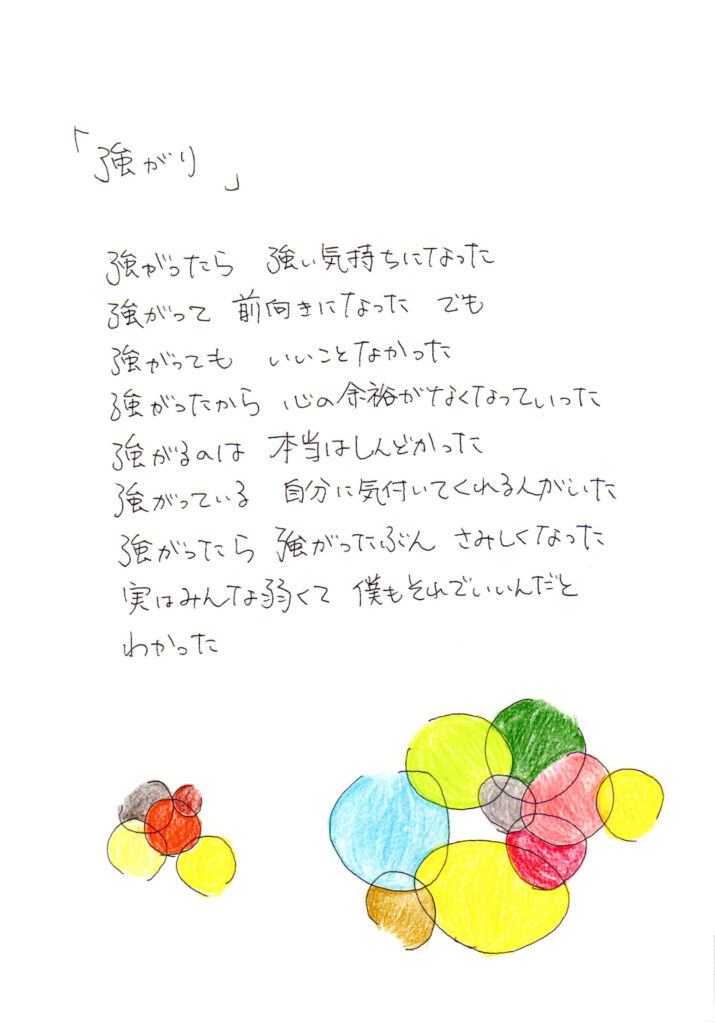 「強がり」
強がったら 強い気持ちになった
強がって 前向きになった でも
強がっても いいことなかった
強がったから 心の余裕がなくなっていった
強がるのは 本当はしんどかった
強がっている 自分に気付いてくれる人がいた
強がったら 強がったぶん さみしくなった
実はみんな弱くて 僕もそれでいいんだと
わかった